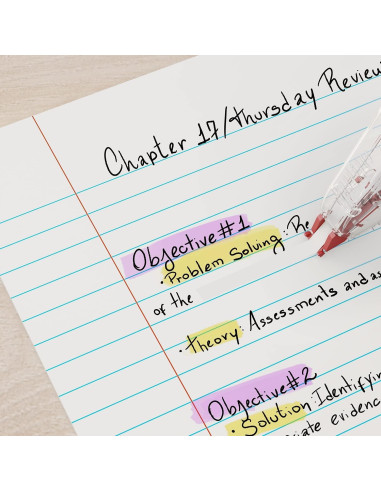 Chapter 17/Thursday Review
Objective #1
• Problem Solving: Re
of the
• Theory: Assessments and as
Objective #2
• Solution: Identifyin
iate evidenc